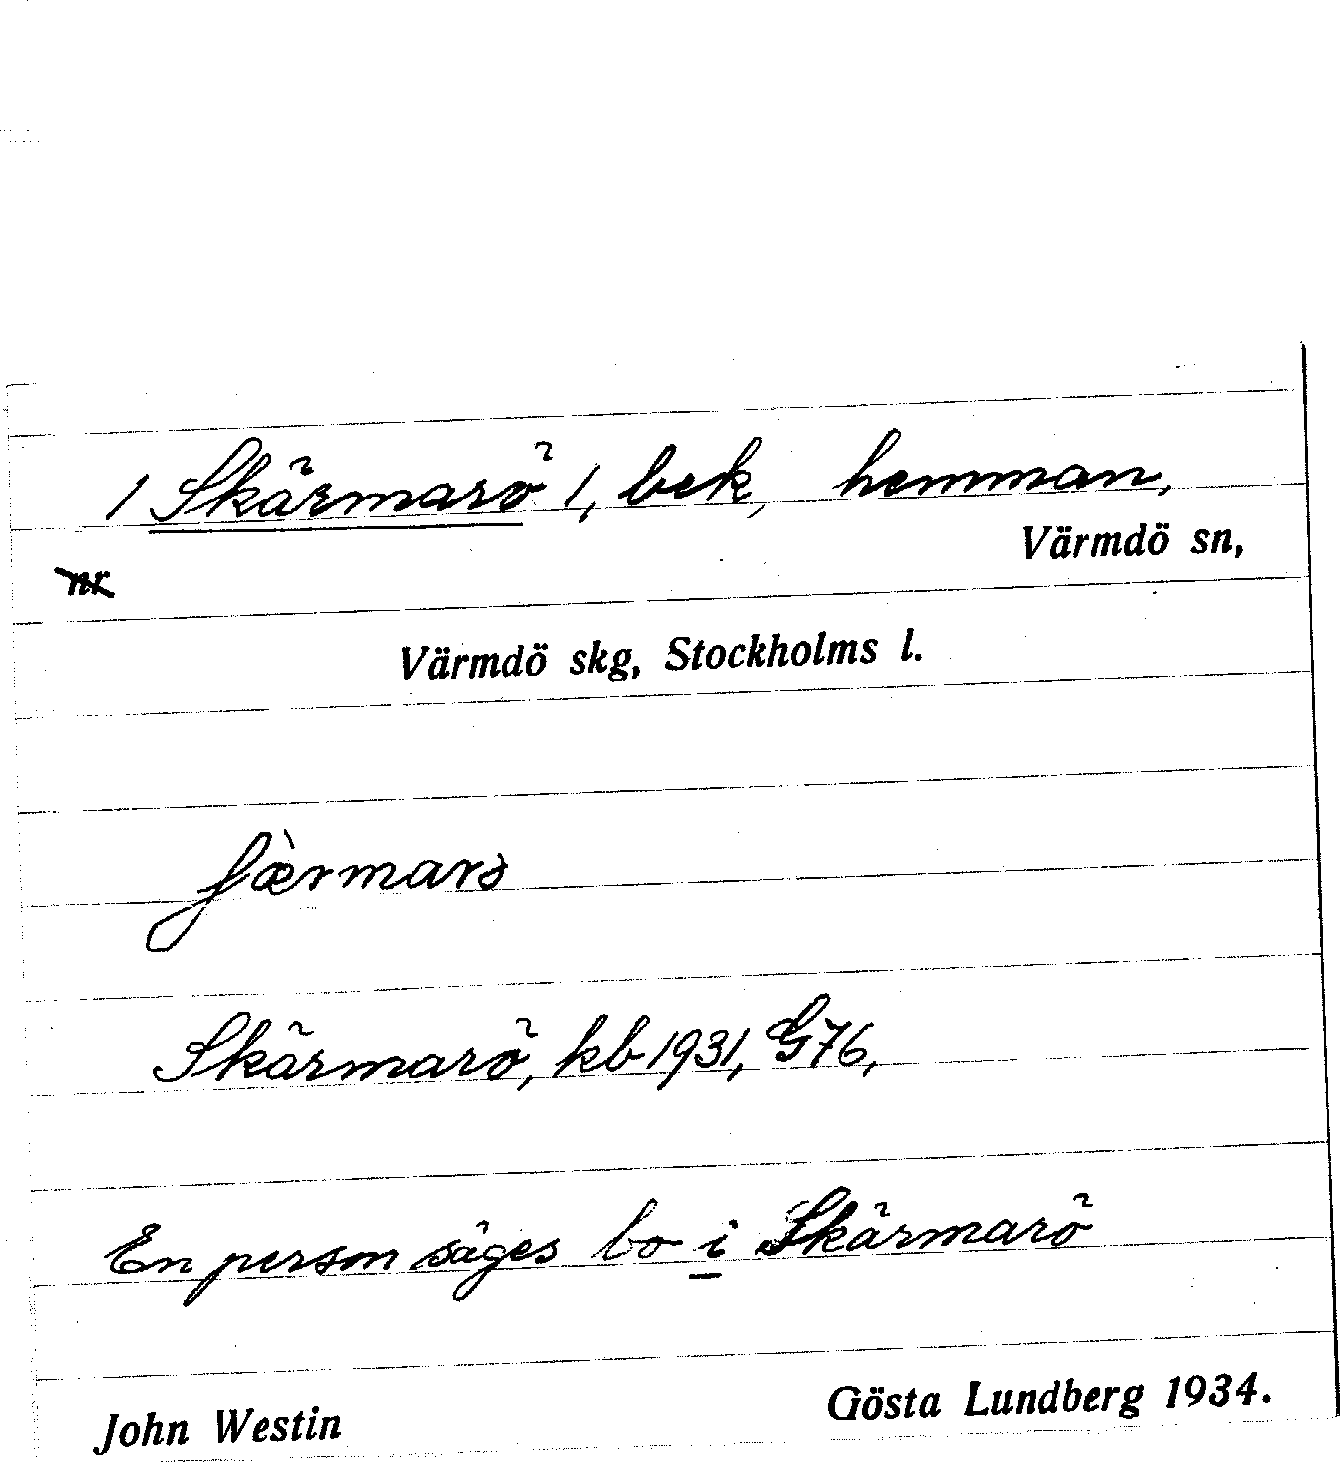 / Skärmarö /, bek, hemman,
Värmdö sn,
nr
Värmdö skg, Stockholms l.
Skärmarö, kb 1931, G76,
En person säges bo i Skärmarö
John Westin
Gösta Lundberg 1934.